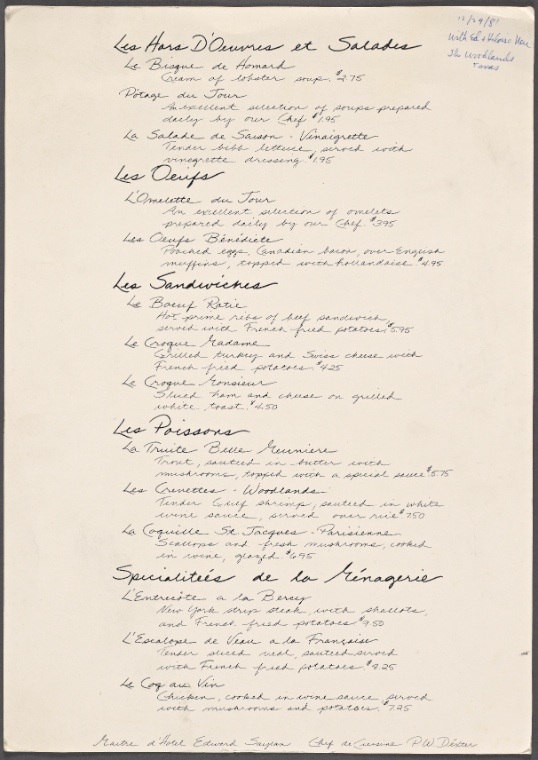 12/29/81
With Ed &
The Woodlands
Texas
Les Hors D'Oeuvres et Salades
Le Bisque de Homard
Cream of lobster soup. $2.75
Potage du Jour
An excellent selection of soups prepared
daily by our Chef $1.95
La Salade de Saison - Vinaigrette
Tender bibb lettuce, served with
vinegrette dressing $1.95
Les Oeufs
L'Omelette du Jour
An excellent selection of omelets
prepared daily by our Chef. $3.95
Les Oeufs Bénédicte
Poached eggs, Canadian bacon, over English
muffins, topped with hollandaise $4.95
Les Sandwiches
Le Boeuf Rotie
Hot prime ribs of beef sandwich,
served with French fried potatoes. $5.95
Le Croque Madame
Grilled turkey and Swiss cheese with
French fried potatoes. $4.25
Le Croque Monsieur
Sliced ham and cheese on grilled
white toast. $4.50
Les Poissons
La Truite Belle Meuniere
Trout, sauteed in butter with
mushrooms, topped with a special sauce $5.75
Les Crevettes - Woodlands
Tender Gulf shrimp, sauteed in white
wine sauce, served over rice $7.50
La Coquille St. Jacques - Parisienne
Scallops and fresh mushrooms, cooked
in wine, glazed. $6.95
Specialiteés de la Ménagerie
L'Entrecôte a la Bercy
New York strip steak, with shallots,
and French fried potatoes $9.50
L'Escalope de Veau a la Française
Tender sliced veal, sauteed served
with French fried potatoes. $8.25
Le Coq au Vin
Chicken, cooked in wine sauce, served
with mushrooms and potatoes. $7.25
Maitre d'Hotel Edward Chef de Cuisine P.W. Dexter